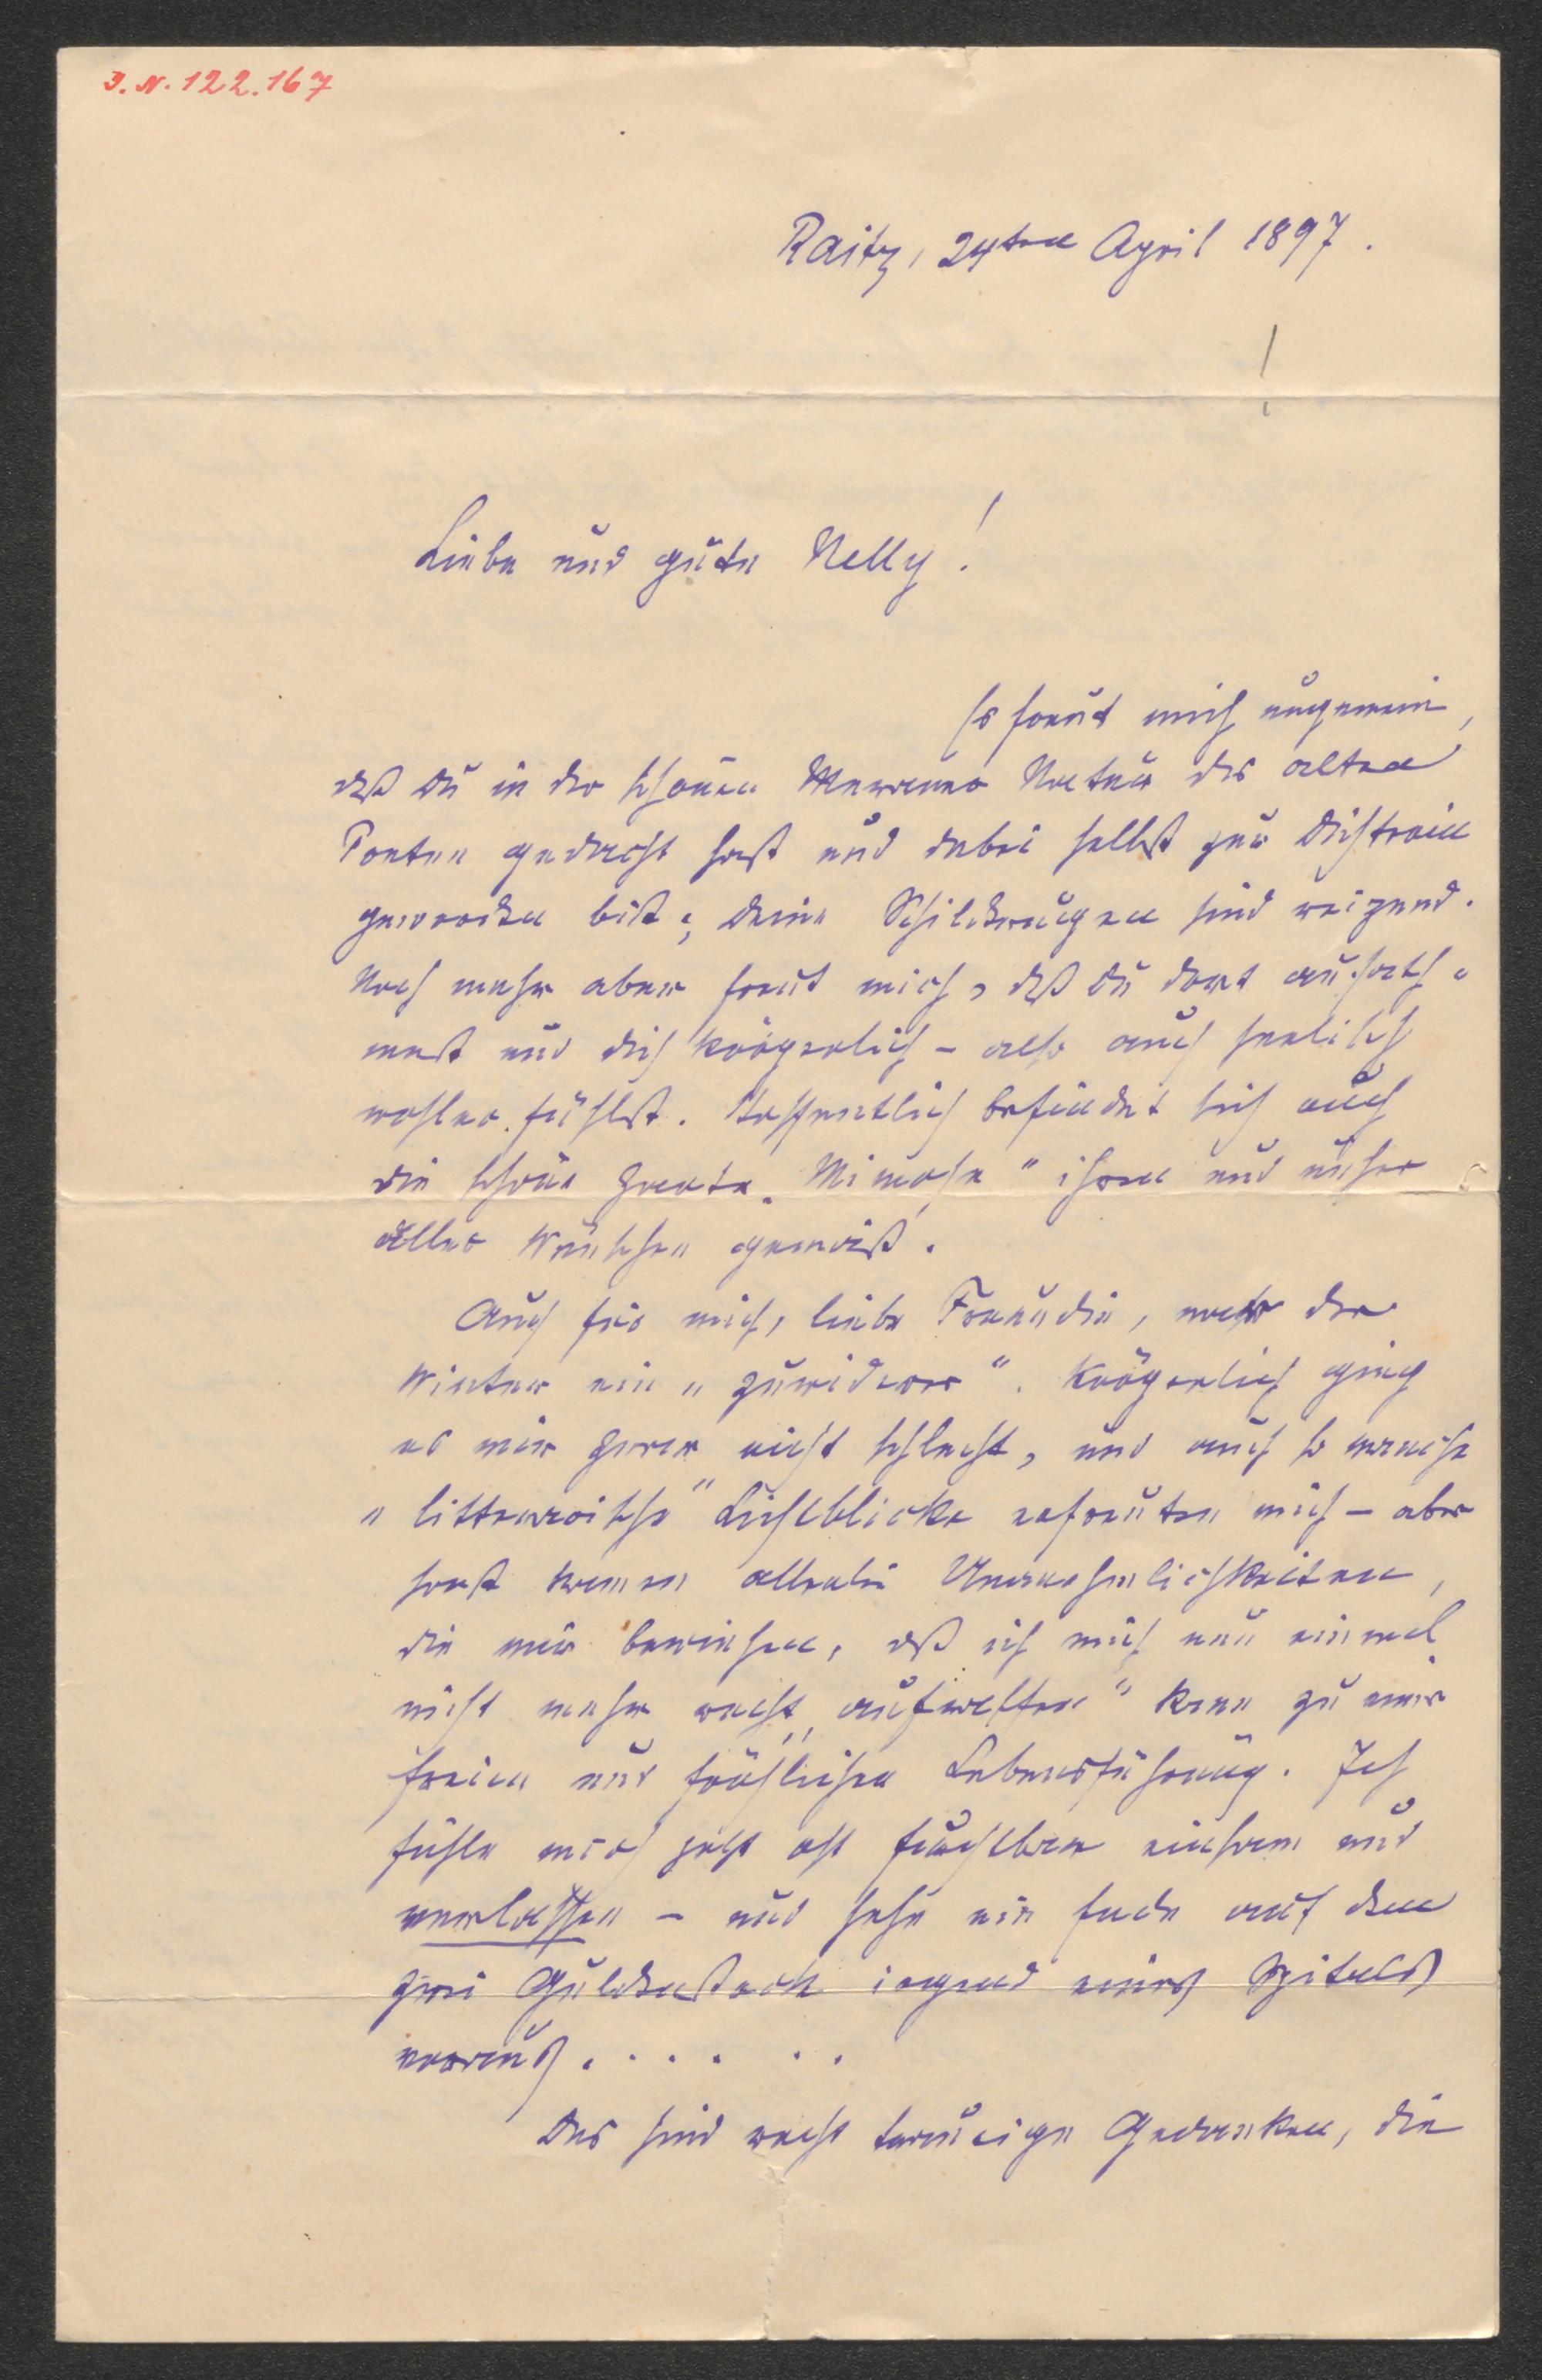 J. N. 122.167
Raitz, 24ten April 1897.
!
Liebe und gute Nelly!
Es freut mich ungemein,
daß Du in der schönen Meraner Natur des alten
Poeten gedacht hast und dabei selbst zur Dichterin
geworden bist; deine Schilderungen sind reizend.
Noch mehr aber freut mich, daß Du dort aufath-
mest und dich körperlich – also auch seelisch
wohler fühlst. Hoffentlich befindet sich auch
die schöne zarte „Mimose" ihren und unser
aller Wünschen gemäß.
Auch für mich, liebe Freundin, war der
Winter ein „zuwiderer". Körperlich ging
es mir zwar nicht schlecht, und auch so manche
„litterarische" Lichtblicke erfreuten mich – aber
sonst kamen allerlei Unannehmlichkeiten,
die mir bewiesen, daß ich mich nun einmal
nicht mehr recht „aufraffen" kann zu einer
freien und fröhlichen Lebensführung. Ich
fühle mich jetzt oft furchtbar einsam und
verlassen – und sehe ein Ende auf dem
zwei Guldenbett irgend eines Spitals
voraus. . . . . . .
Das sind recht traurige Gedanken, die